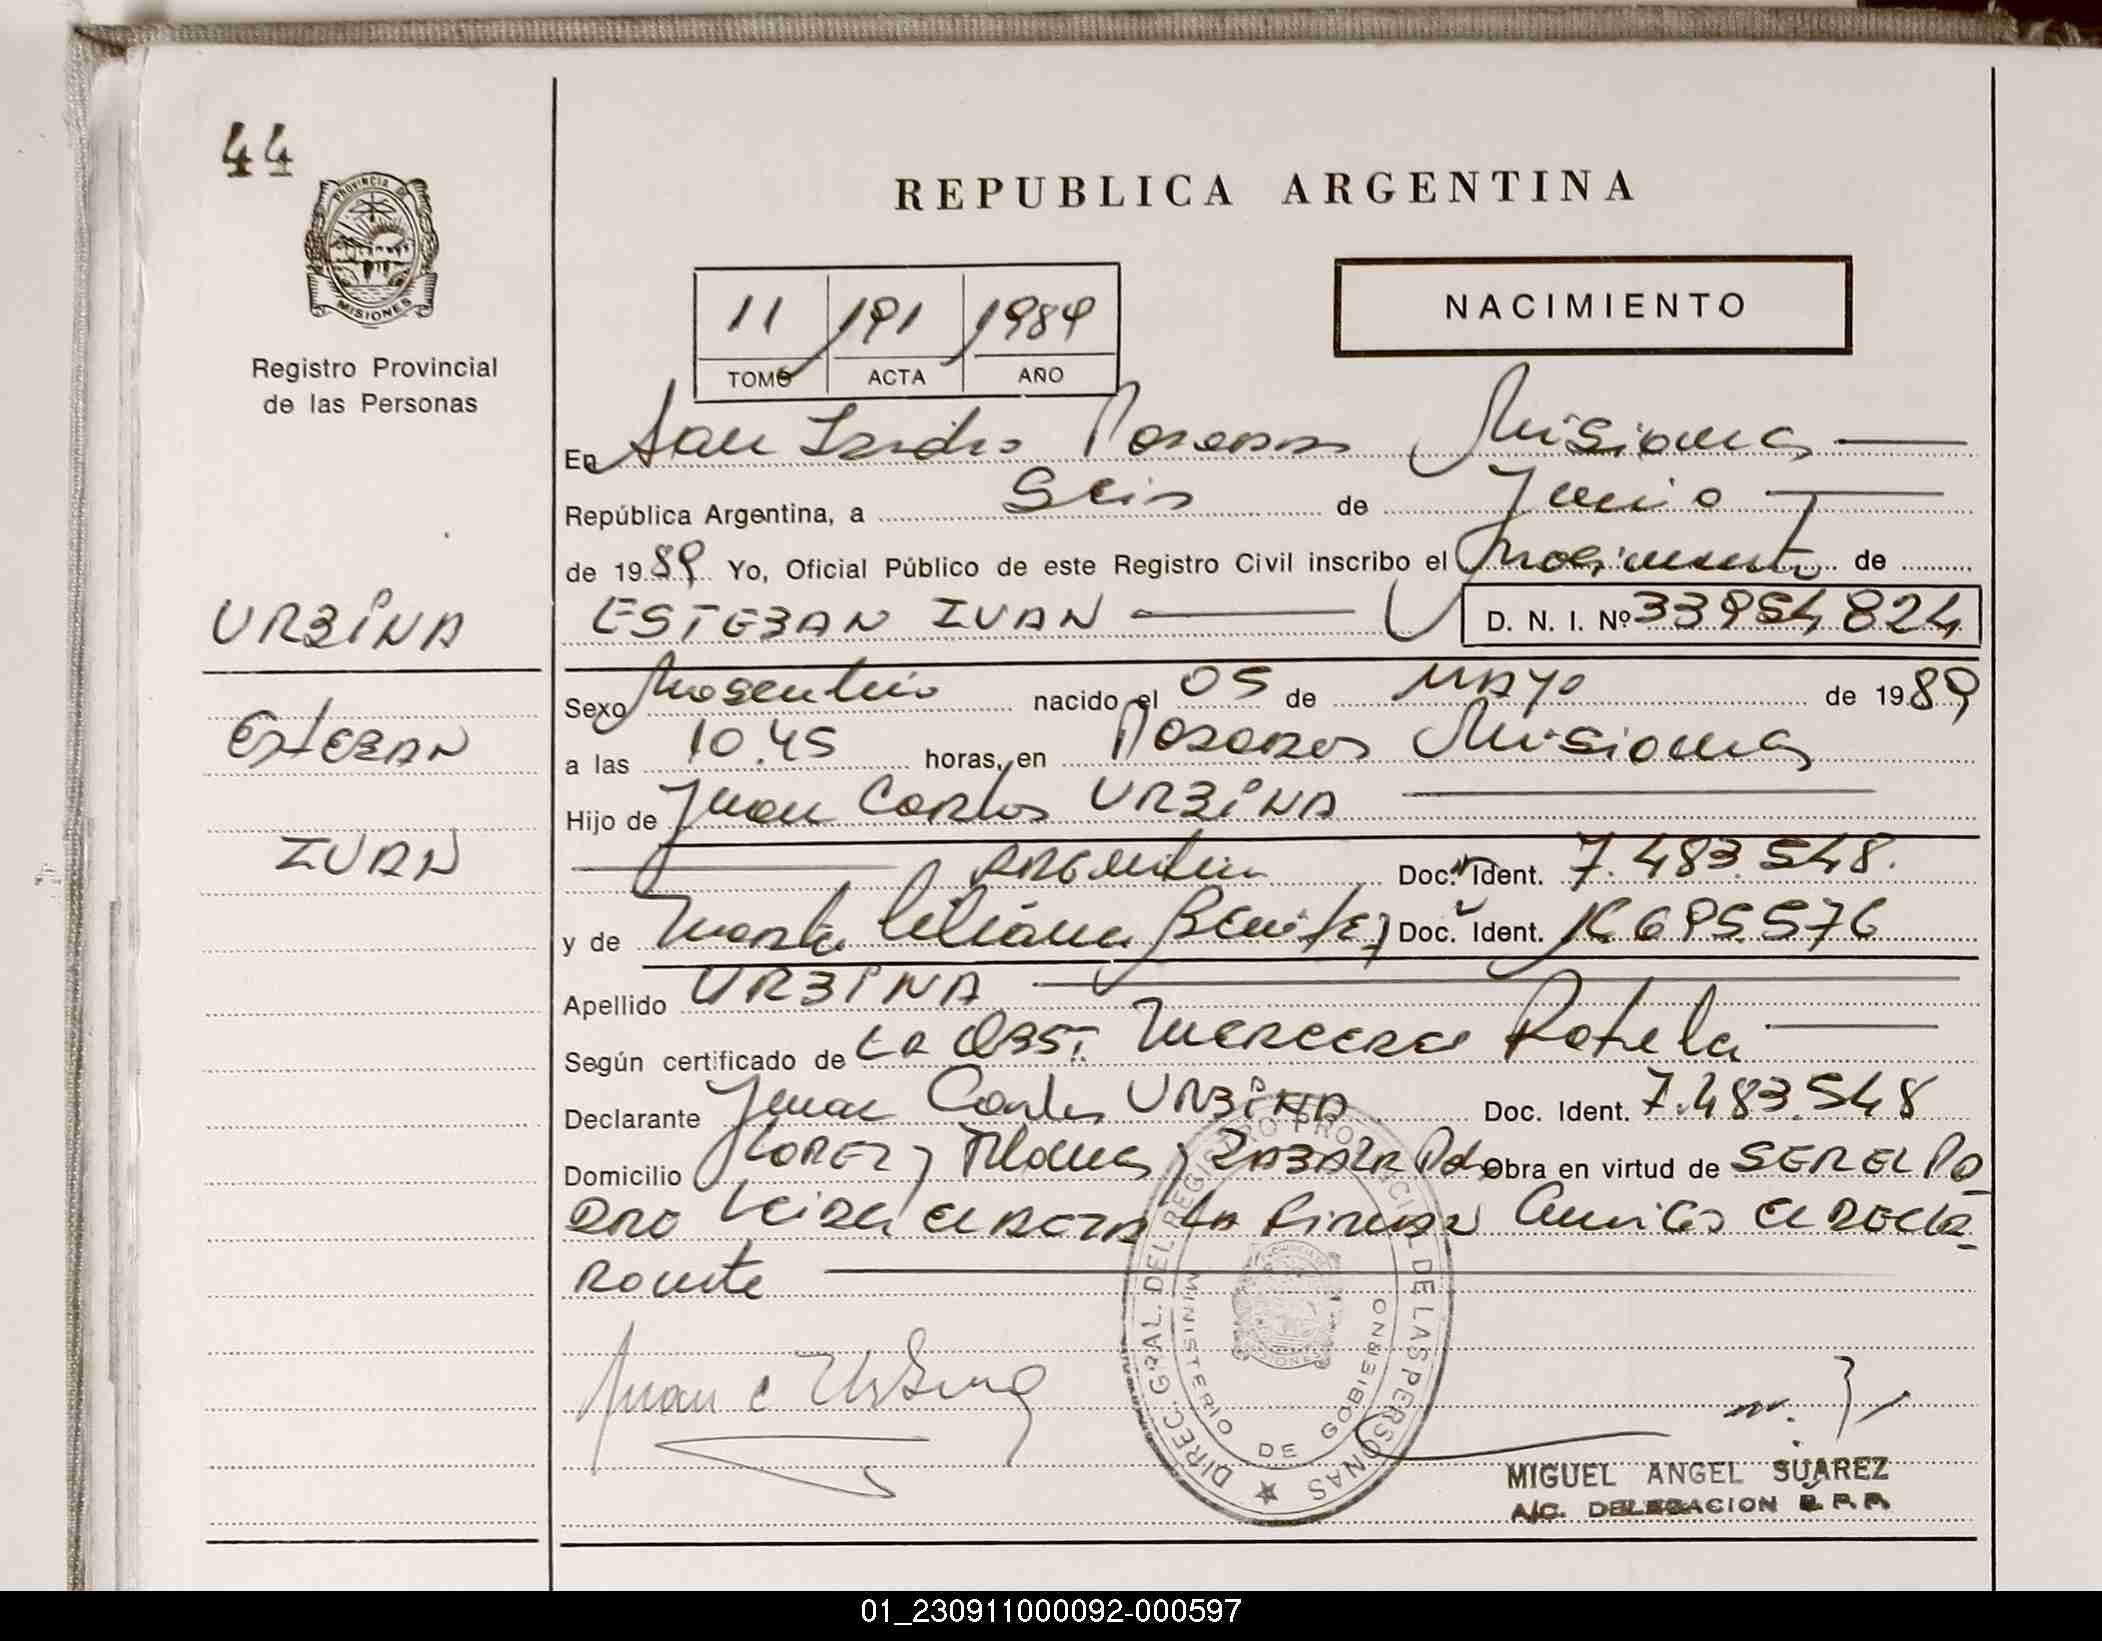 44
PROVINCIA DE
MISIONES
Registro Provincial
de las Personas
REPUBLICA ARGENTINA
11 191 1989
TOMO ACTA AÑO
NACIMIENTO
En San Isidro Posadas Misiones
República Argentina, a Seis de Junio
de 1989 Yo, Oficial Público de este Registro Civil inscribo el Nacimiento de
URBINA
ESTEBAN IVAN D. N. I. Nº 33954824
Sexo Masculino nacido el 05 de MAYO de 1989
ESTEBAN
a las 10.45 horas, en Posadas Misiones
Hijo de Juan Carlos URBINA
IVAN
Argentino Doc. Ident. 7.483.548.
y de Marta Liliana Benitez Doc. Ident. 16695576
Apellido URBINA
Según certificado de La OBST. Mercedes Rotela
Declarante Juan Carlos URBINA Doc. Ident. 7.483.548
Domicilio y Obra en virtud de SER EL PA
DRE Leida el ACTA La Firman el DECLA
RANTE
Juan C Urbina
DIREC. GRAL. DEL REGISTRO PROVINCIAL DE LAS PERSONAS
MINISTERIO DE GOBIERNO
MIGUEL ANGEL SUAREZ
A/C. DELEGACION R. P. P.
01_230911000092-000597